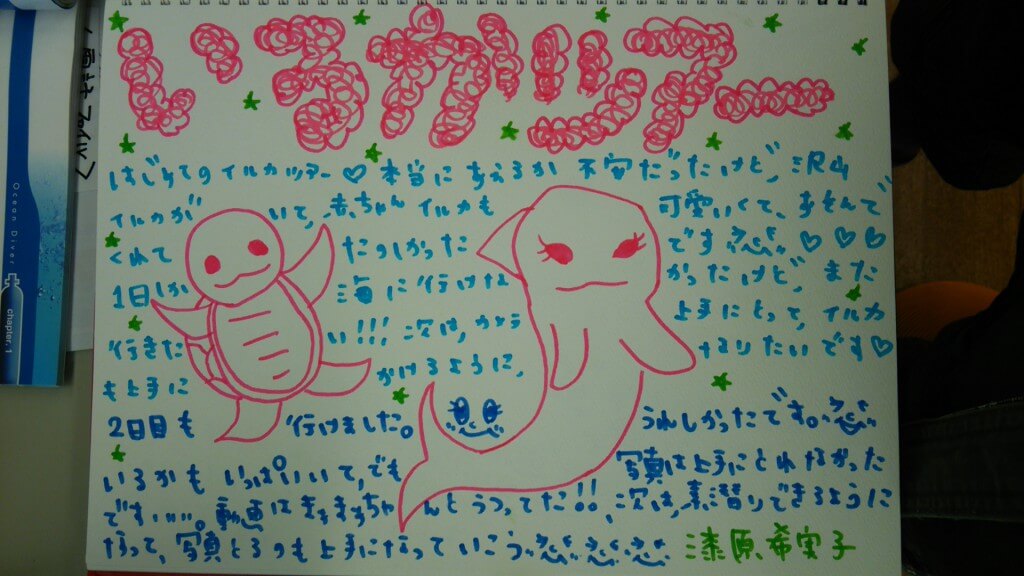 いるかツアー
はじめてのイルカツアー♡本当にあえるか 不安だったけど、沢山
イルカが いて、赤ちゃんイルカも 可愛いくて、あそんで
くれて たのしかった です。♡♡♡
1日しか 海に行けな かったけど、また
行きた い!!!次は、カメラ 上手にとって、イルカ
も上手に かけるように、 なりたいです♡
2日目も 行けました。 うれしかったです。
いるかも いっぱいいて、でも 写真は上手にとれなかった
です......。動画はまぁまぁちゃんとうつってた!!次は、素潜りできるように
なって、写真とるのも上手になっていこう。 漆原希実子
Ocean Diver
chapter.1